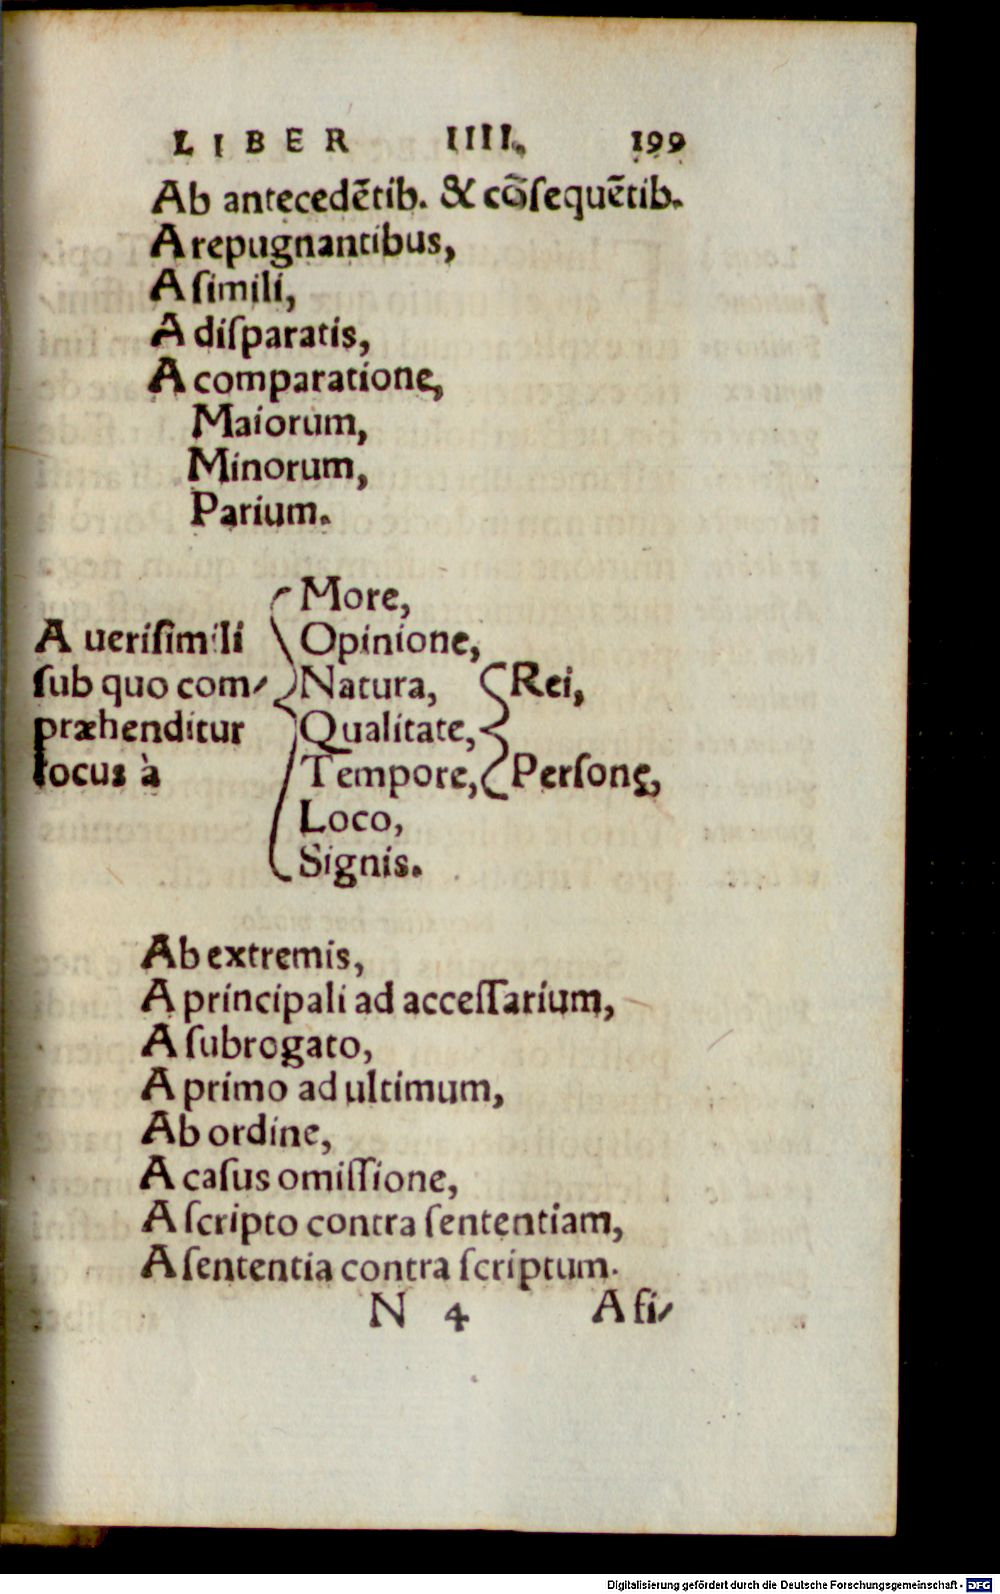 LIBER IIII. 199
Ab antecedẽtib. & cõſequẽtib.
A repugnantibus,
A ſimili,
A diſparatis,
A comparatione,
Maiorum,
Minorum,
Parium.
A ueriſimili
ſub quo com⸗
præhenditur
locus à
More,
Opinione,
Natura,
Qualitate,
Tempore,
Loco,
Signis.
Rei,
Perſonę,
Ab extremis,
A principali ad acceſſarium,
A ſubrogato,
A primo ad ultimum,
Ab ordine,
A caſus omiſſione,
A ſcripto contra ſententiam,
A ſententia contra ſcriptum.
N 4 A ſi⸗
Digitalisierung gefördert durch die Deutsche Forschungsgemeinschaft - DFG